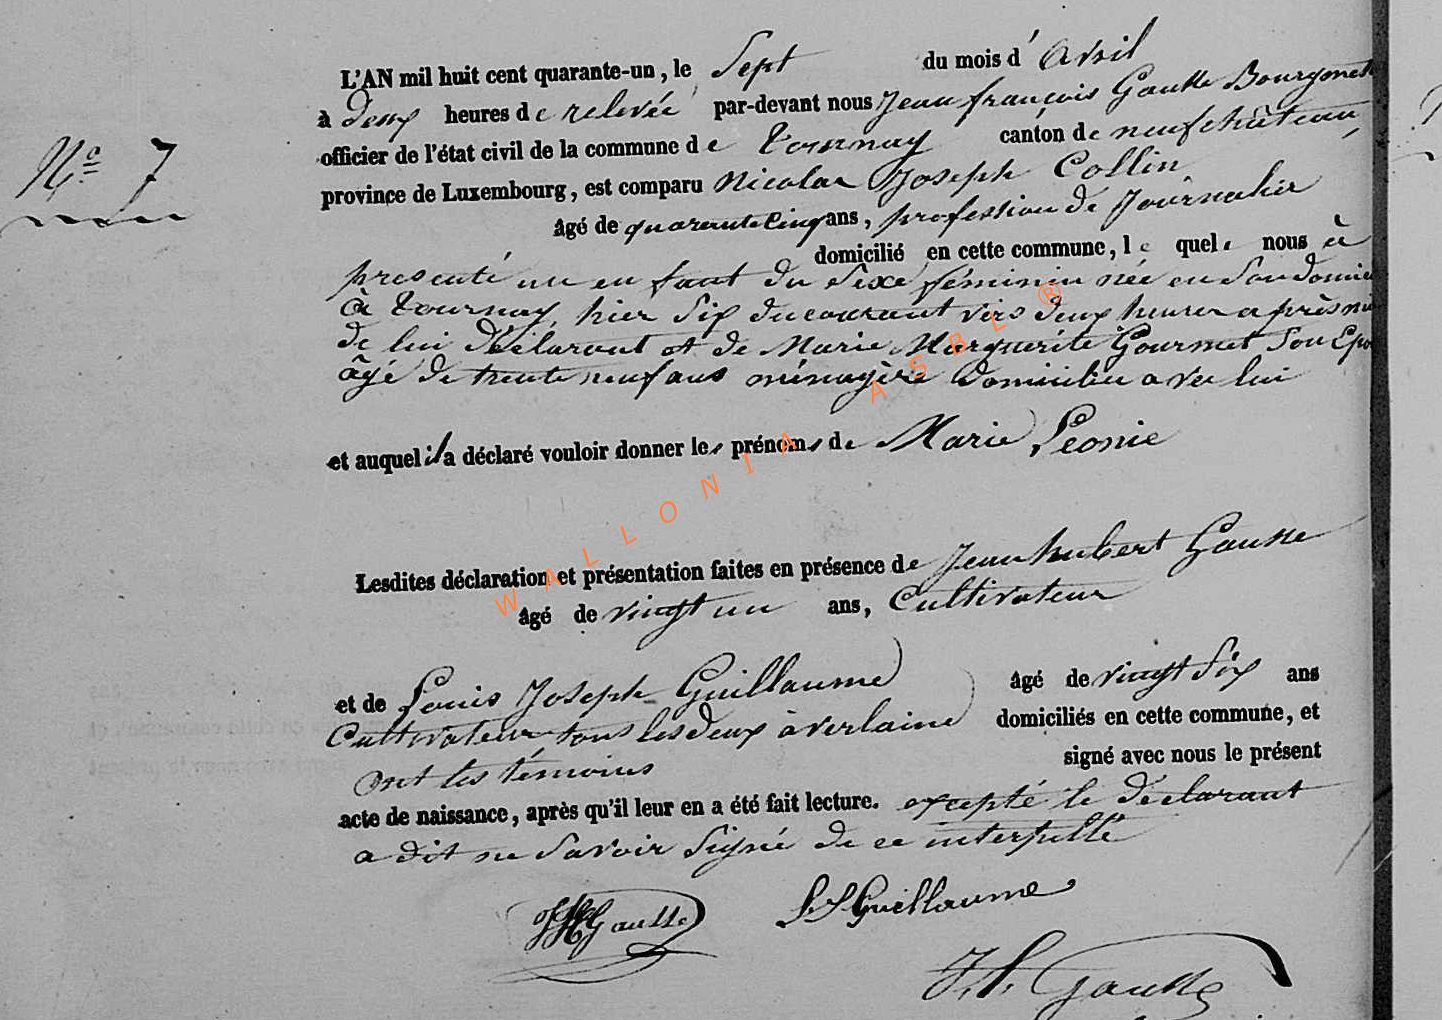 L'AN mil huit cent quarante-un, le Sept du mois d' Avril
à deux heures de relevée par-devant nous Jean françois Gausse Bourgmest
officier de l'état civil de la commune de tournay canton de neufchâteau,
N° 7
province de Luxembourg, est comparu Nicolas Joseph Collin
âgé de quarante cinq ans, profession de Journalier
domicilié en cette commune, le quel nous à
presenté un enfant du Sexe féminin née en Son domici
à tournay, hier Six du courant vers deux heures après mi
de lui Déclarant et de Marie Marguerite Gourmet Son Epo
âgé de trente neuf ans ménagère Domicilieé avec lui
et auquel il a déclaré vouloir donner les prénoms de Marie Leonie
Lesdites déclaration et présentation faites en présence de Jean hubert Gausse
âgé de vingt un ans, Cultivateur
et de Louis Joseph Guillaume âgé de vingt Six ans
Cultivateur tous les deux à verlaine domiciliés en cette commune, et
ont les témoins signé avec nous le présent
acte de naissance, après qu'il leur en a été fait lecture. excepté le déclarant
a dit ne Savoir Signé de ce interpellé
JH Gausse L J Guillaume
J. f. Gausse
WALLONIA ASBL ®